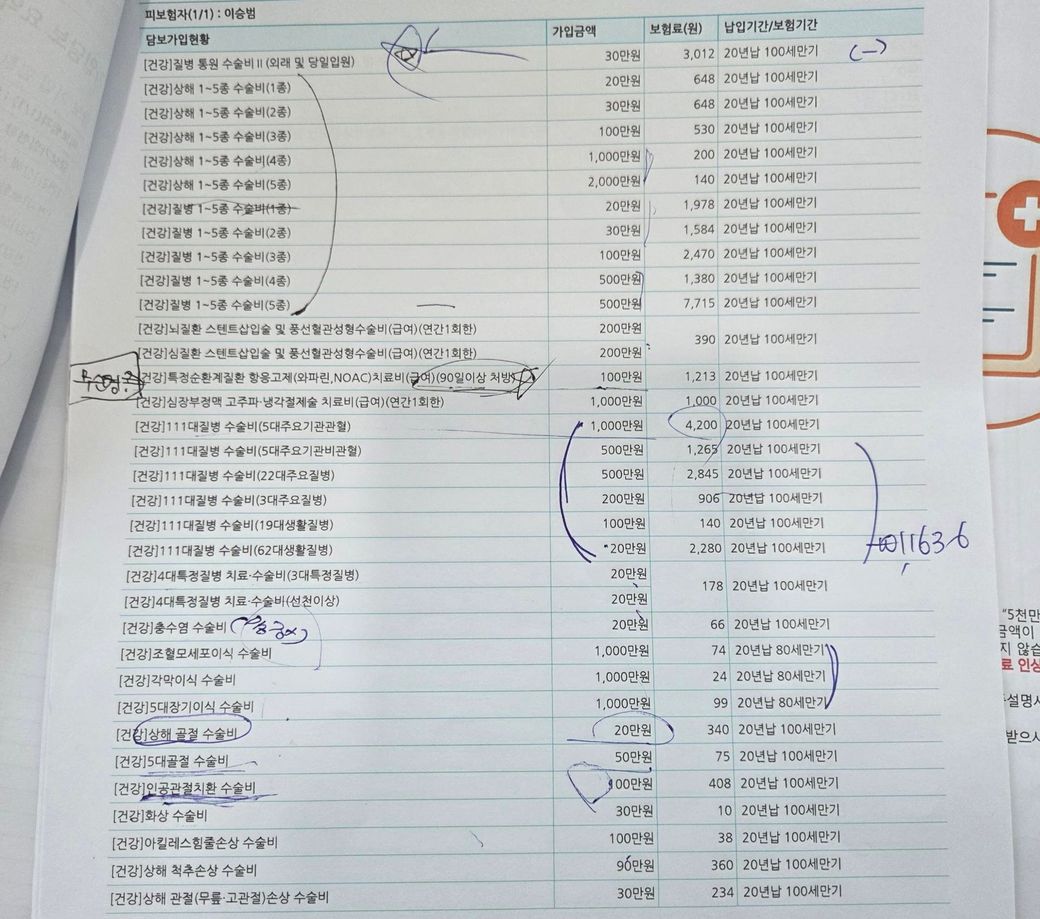 피보험자(1/1) : 이승범
담보가입현황 가입금액 보험료(원) 납입기간/보험기간
[건강]질병 통원 수술비Ⅱ(외래 및 당일입원) 30만원 3,012 20년납 100세만기
[건강]상해 1~5종 수술비(1종) 20만원 648 20년납 100세만기
[건강]상해 1~5종 수술비(2종) 30만원 648 20년납 100세만기
[건강]상해 1~5종 수술비(3종) 100만원 530 20년납 100세만기
[건강]상해 1~5종 수술비(4종) 1,000만원 200 20년납 100세만기
[건강]상해 1~5종 수술비(5종) 2,000만원 140 20년납 100세만기
[건강]질병 1~5종 수술비(1종) 20만원 1,978 20년납 100세만기
[건강]질병 1~5종 수술비(2종) 30만원 1,584 20년납 100세만기
[건강]질병 1~5종 수술비(3종) 100만원 2,470 20년납 100세만기
[건강]질병 1~5종 수술비(4종) 500만원 1,380 20년납 100세만기
[건강]질병 1~5종 수술비(5종) 500만원 7,715 20년납 100세만기
[건강]뇌질환 스텐트삽입술 및 풍선혈관성형수술비(급여)(연간1회한) 200만원
390 20년납 100세만기
[건강]심질환 스텐트삽입술 및 풍선혈관성형수술비(급여)(연간1회한) 200만원
[건강]특정순환계질환 항응고제(와파린,NOAC)치료비(급여)(90일이상 처방) 100만원 1,213 20년납 100세만기
[건강]심장부정맥 고주파·냉각절제술 치료비(급여)(연간1회한) 1,000만원 1,000 20년납 100세만기
[건강]111대질병 수술비(5대주요기관관혈) 1,000만원 4,200 20년납 100세만기
[건강]111대질병 수술비(5대주요기관비관혈) 500만원 1,265 20년납 100세만기
[건강]111대질병 수술비(22대주요질병) 500만원 2,845 20년납 100세만기
[건강]111대질병 수술비(3대주요질병) 200만원 906 20년납 100세만기
[건강]111대질병 수술비(19대생활질병) 100만원 140 20년납 100세만기
[건강]111대질병 수술비(62대생활질병) 20만원 2,280 20년납 100세만기
[건강]4대특정질병 치료·수술비(3대특정질병) 20만원
178 20년납 100세만기
[건강]4대특정질병 치료·수술비(선천이상) 20만원
[건강]충수염 수술비 20만원 66 20년납 100세만기
[건강]조혈모세포이식 수술비 1,000만원 74 20년납 80세만기
[건강]각막이식 수술비 1,000만원 24 20년납 80세만기
[건강]5대장기이식 수술비 1,000만원 99 20년납 80세만기
[건강]상해 골절 수술비 20만원 340 20년납 100세만기
[건강]5대골절 수술비 50만원 75 20년납 100세만기
[건강]인공관절치환 수술비 100만원 408 20년납 100세만기
[건강]화상 수술비 30만원 10 20년납 100세만기
[건강]아킬레스힘줄손상 수술비 100만원 38 20년납 100세만기
[건강]상해 척추손상 수술비 90만원 360 20년납 100세만기
[건강]상해 관절(무릎·고관절)손상 수술비 30만원 234 20년납 100세만기
"5천만
금액이
지 않습
료 인상
받으시